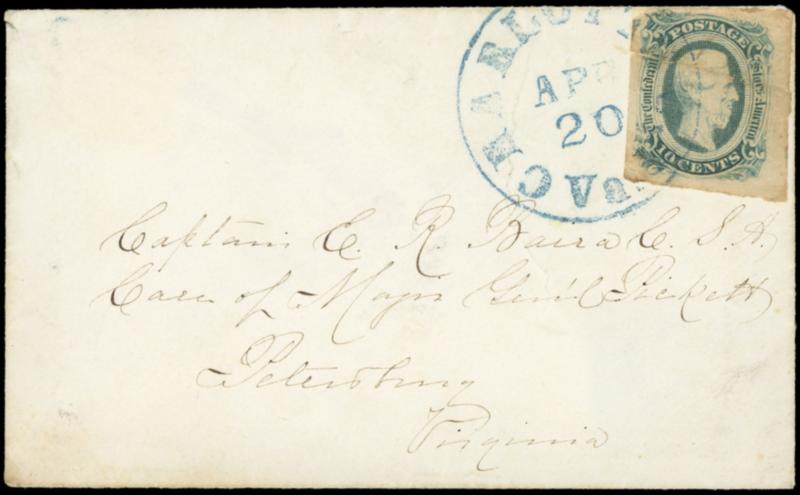 CHARLOTT
APR
20
Va.
POSTAGE
The Confederate States America
10 CENTS
Captain E. R. Baira C. S. A.
Care of Majr Gen'l Pickett
Petersburg
Virginia